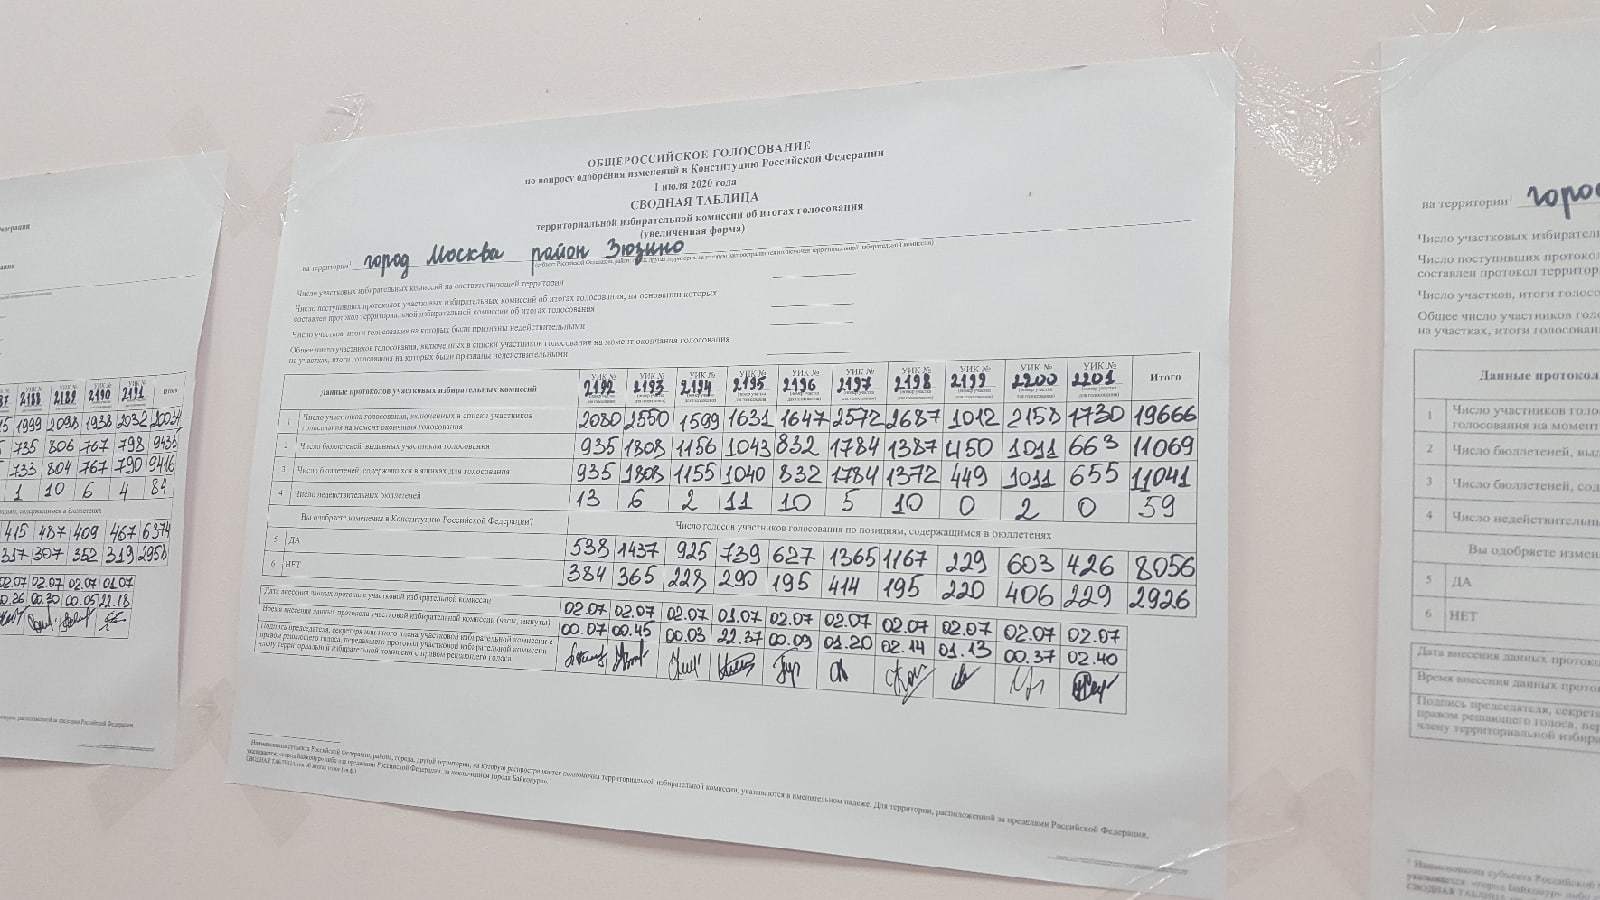 ОБЩЕРОССИЙСКОЕ ГОЛОСОВАНИЕ
по вопросу одобрения изменений в Конституцию Российской Федерации
1 июля 2020 года
СВОДНАЯ ТАБЛИЦА
территориальной избирательной комиссии об итогах голосования
(увеличенная форма)
на территории город Москва район Зюзино
Число участковых избирательных комиссий на соответствующей территории
Число поступивших протоколов участковых избирательных комиссий об итогах голосования, на основании которых
составлен протокол территориальной избирательной комиссии об итогах голосования
Число участков, итоги голосования на которых были признаны недействительными
Общее число участников голосования, включенных в списки участников голосования на момент окончания голосования
на участках, итоги голосования на которых были признаны недействительными
Данные протоколов участковых избирательных комиссий УИК № 2192 УИК № 2193 УИК № 2194 УИК № 2195 УИК № 2196 УИК № 2197 УИК № 2198 УИК № 2199 УИК № 2200 УИК № 2201 Итого
1 Число участников голосования, включенных в список участников
голосования на момент окончания голосования 2080 2550 1599 1631 1647 2572 2687 1012 2158 1730 19666
2 Число бюллетеней, выданных участникам голосования 935 1808 1156 1043 832 1784 1387 450 1011 663 11069
3 Число бюллетеней, содержащихся в ящиках для голосования 935 1808 1155 1040 832 1784 1372 449 1011 655 11041
4 Число недействительных бюллетеней 13 6 2 11 10 5 10 0 2 0 59
Вы одобряете изменения в Конституцию Российской Федерации? Число голосов участников голосования по позициям, содержащимся в бюллетенях
5 ДА 538 1437 925 739 627 1365 1167 229 603 426 8056
6 НЕТ 384 365 228 290 195 414 195 220 406 229 2926
Дата внесения данных протокола участковой избирательной комиссии 02.07 02.07 02.07 01.07 02.07 02.07 02.07 02.07 02.07 02.07
Время внесения данных протокола участковой избирательной комиссии (часы, минуты) 00.07 00.45 00.03 22.37 00.09 01.20 02.14 01.13 00.37 02.40
Подпись председателя, секретаря или иного члена участковой избирательной комиссии с
правом решающего голоса, передавшего протокол участковой избирательной комиссии
члену территориальной избирательной комиссии с правом решающего голоса
Наименование субъекта Российской Федерации, района, города, другой территории, на которую распространяются полномочия территориальной избирательной комиссии, указывается в именительном падеже. Для территории, расположенной за пределами Российской Федерации,
указывается «город Байконур» либо «за пределами Российской Федерации, за исключением города Байконура».
2188 2189 2190 2191 Итого
1999 2098 1938 2032
735 806 767 798 9436
733 804 767 790 9416
1 10 6 4 84
415 487 409 467 6374
317 307 352 319 2958
02.07 02.07 02.07 01.07
00.30 00.05 22.18
на территории
Число участковых избирател
Число поступивших протоко
составлен протокол территор
Число участков, итоги голосо
Общее число участников гол
на участках, итоги голосован
Данные протокол
1 Число участников голо
голосования на момент
2 Число бюллетеней, выд
3 Число бюллетеней, сод
4 Число недействительн
Вы одобряете измен
5 ДА
6 НЕТ
Дата внесения данных протоко
Время внесения данных прото
Подпись председателя, секрета
правом решающего голоса, пер
члену территориальной избира
Наименование субъекта Российской
указывается «город Байконур» либо
СВОДНАЯ ТАБЛИЦА